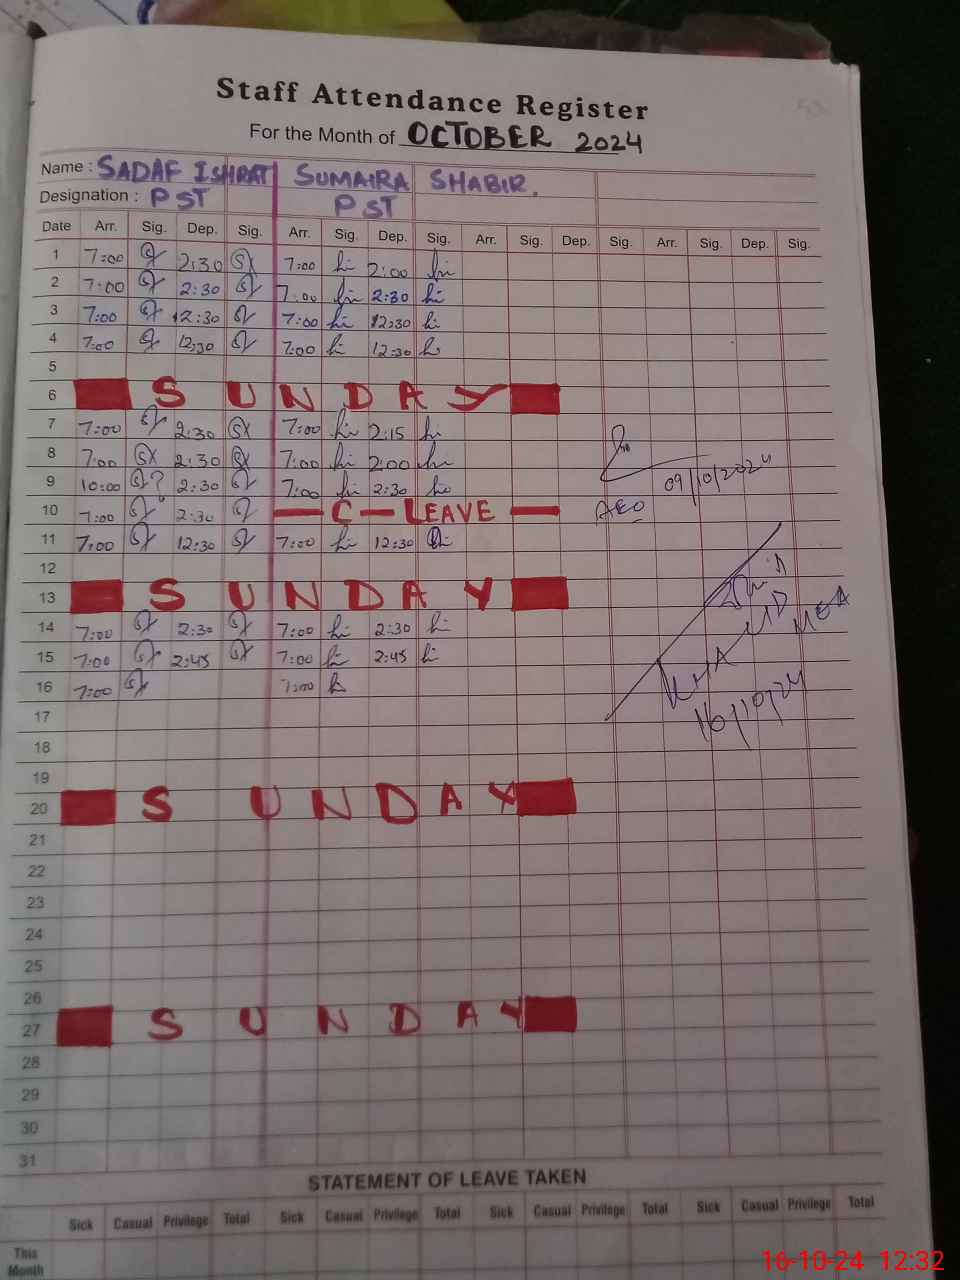 Staff Attendance Register
For the Month of OCTOBER 2024
Name : SADAF ISHRAT SUMAIRA SHABIR.
Designation : PST PST
Date Arr. Sig. Dep. Sig. Arr. Sig. Dep. Sig. Arr. Sig. Dep. Sig. Arr. Sig. Dep. Sig.
1 7:00 2:30 7:00 2:00
2 7:00 2:30 7:00 2:30
3 7:00 12:30 7:00 12:30
4 7:00 12:30 7:00 12:30
5
6 SUNDAY
7 7:00 2:30 7:00 2:15
8 7:00 2:30 7:00 2:00
9 10:00 ? 2:30 7:00 2:30 09/10/2024
10 7:00 2:30 — C — LEAVE — AEO
11 7:00 12:30 7:00 12:30
12
13 SUNDAY
14 7:00 2:30 7:00 2:30
15 7:00 2:45 7:00 2:45 MEA
16 7:00 7:00
17 16/10/24
18
19
20 SUNDAY
21
22
23
24
25
26
27 SUNDAY
28
29
30
31
STATEMENT OF LEAVE TAKEN
Sick Casual Privilege Total Sick Casual Privilege Total Sick Casual Privilege Total Sick Casual Privilege Total
This
Month
16-10-24 12:32